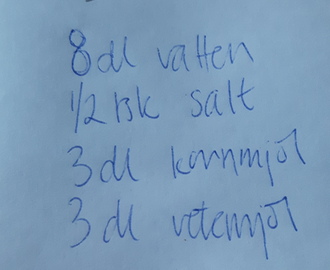 8 dl vatten
1/2 tsk salt
3 dl kornmjöl
3 dl vetemjöl